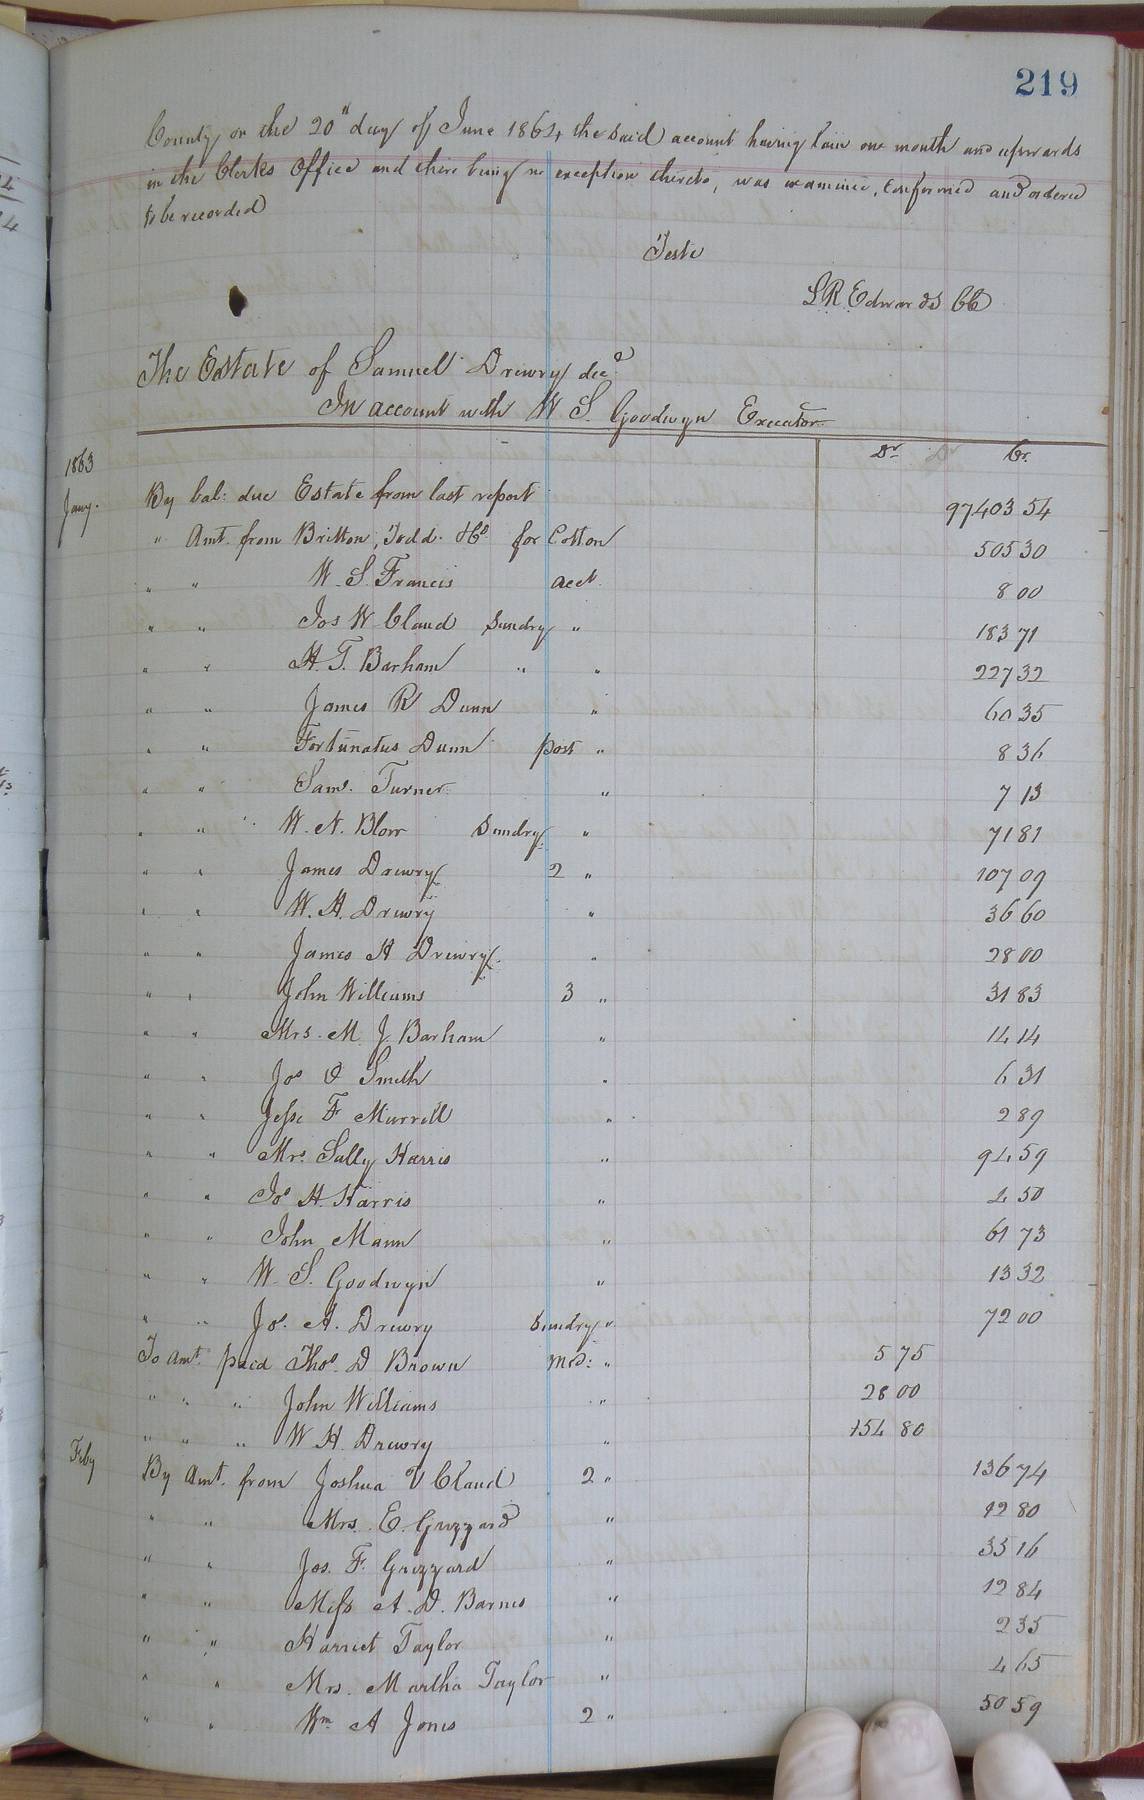 219
County on the 20" day of June 1864 the said account having lain one month and upwards
in the Clerks Office and there being no exception thereto, was examined, confirmed and ordered
to be recorded
Teste
L R Edwards CC
The Estate of Samuel Drewry decd
In account with W S. Goodwyn Executor
Dr Cr.
1863
Jany. By bal: due Estate from last report 97403 54
" Amt. from Britton, Todd & Co for Cotton 505 30
" " W. S. Francis acct. 8 00
" " Jos W Claud Sundry " 183 71
" " H. T. Barham " " 227 32
" " James R Dunn " 60 35
" " Fortunatus Dunn part " 8 36
" " Saml. Turner " 7 13
" " W. N. Blow Sundry " 71 81
" " James Drewry 2 " 107 09
" " W. H. Drewry " 36 60
" " James H Drewry " 28 00
" " John Williams 3 " 31 83
" " Mrs. M. J. Barham " 14 14
" " Jos Smith " 6 31
" " Jesse F Murrell " 2 89
" " Mrs Sally Harris " 94 59
" " Jos H. Harris " 50
" " John Mann " 61 73
" " W. S. Goodwyn " 13 32
" " Jos. A. Drewry Sundry " 72 00
To Amt. paid Thos. D Brown Md: " 5 75
" " " John Williams " 28 00
" " " W H. Drewry " 154 80
Feby By Amt. from Joshua Claud 2 " 136 74
" " Mrs. E. Grizzard " 80
" " Jos. F. Grizzard " 35 16
" " Miss A. D. Barnes " 12 84
" " Harriet Taylor " 2 35
" " Mrs. Martha Taylor " 4 65
" " Wm A Jones 2 " 50 59